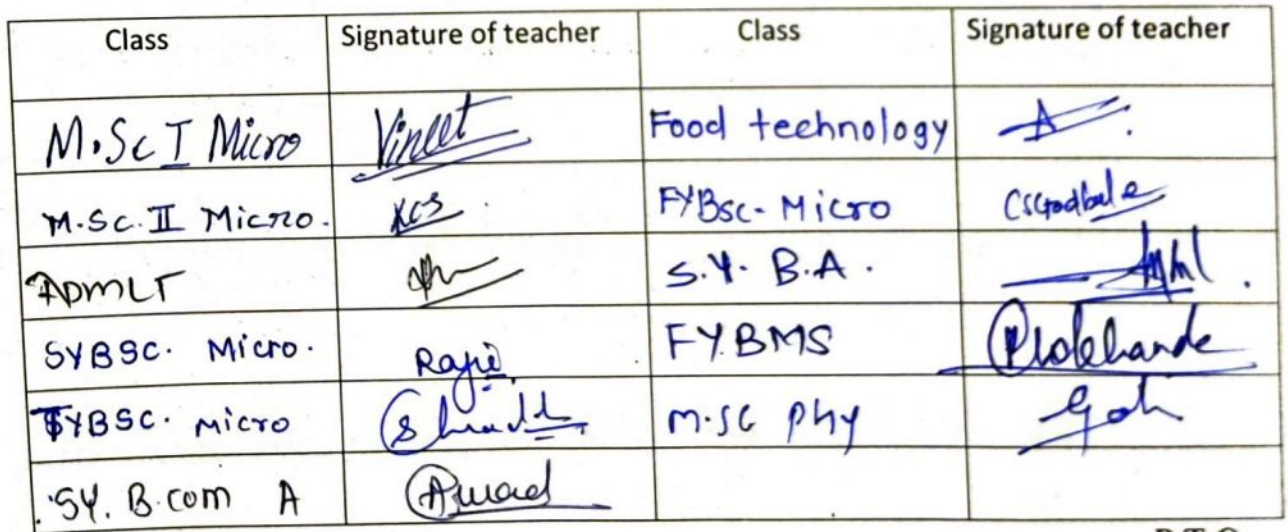 Class Signature of teacher Class Signature of teacher
M.Sc I Micro Vineet Food technology A
M.Sc. II Micro. KCS FYBsc- Micro CSGodbole
ADMLT S.Y. B.A.
SYBSC. Micro. FYBMS
TYBSC. Micro Shraddh M.SC PHY
SY. B.com A Awad
P.T.O